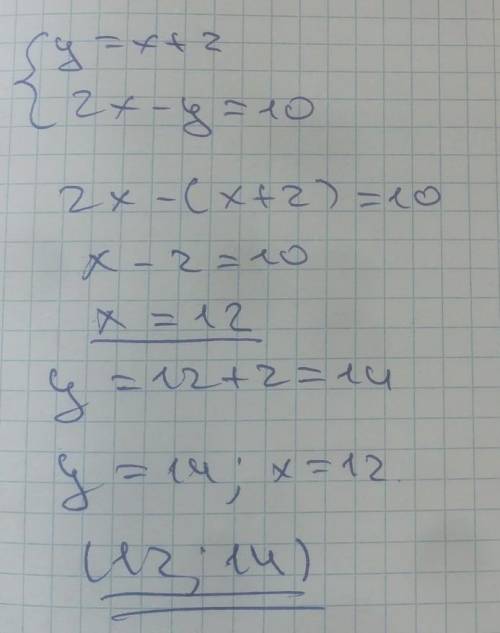 y = x + 2
2x - y = 10
2x - (x + 2) = 10
x - 2 = 10
x = 12
y = 12 + 2 = 14
y = 14; x = 12.
(12; 14)